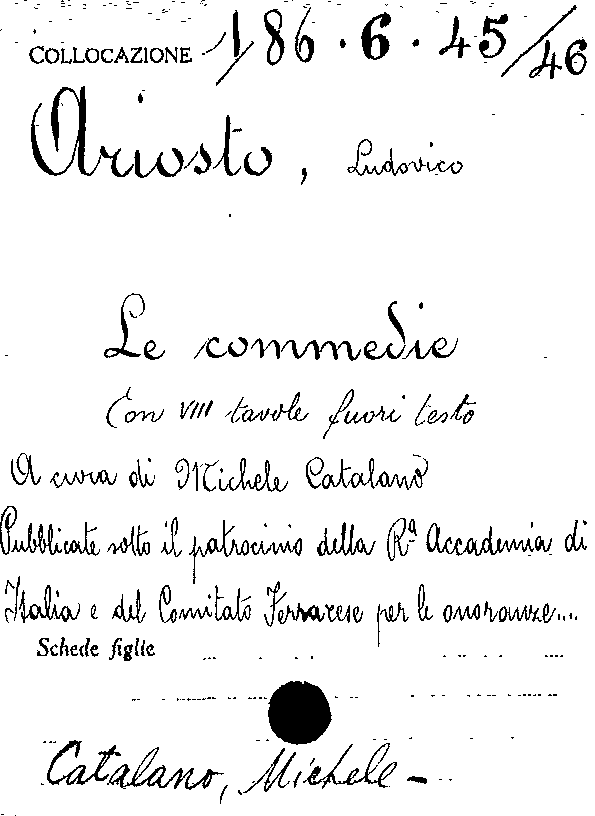 COLLOCAZIONE 186·6·45/46
Ariosto, Ludovico
Le commedie
Con VIII tavole fuori testo
A cura di Michele Catalano
Pubblicate sotto il patrocinio della Rª Accademia di
Italia e del Comitato Ferrarese per le onoranze...
Schede figlie
Catalano, Michele -